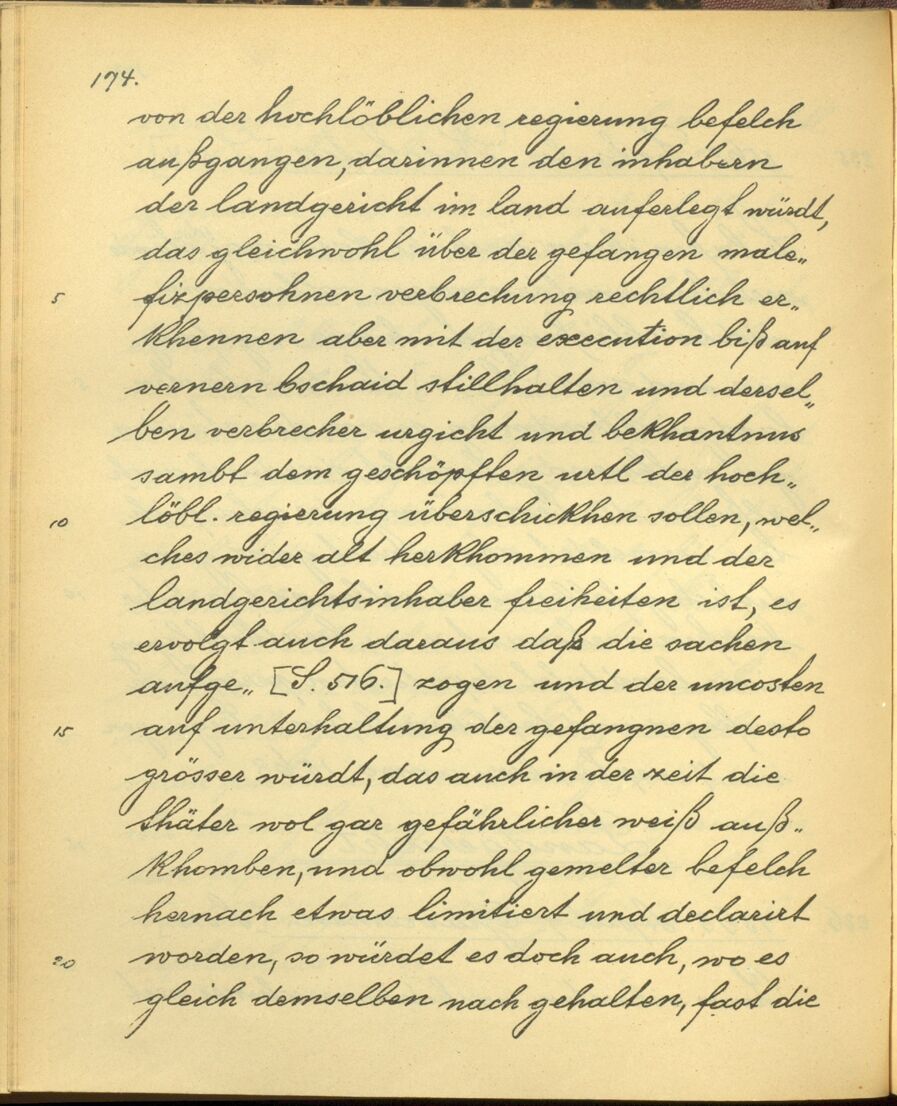 174.
von der hochlöblichen regierung befelch
außgangen, darinnen den inhabern
der landgericht im land auferlegt würdt,
das gleichwohl über der gefangen male„
5 fizpersohnen verbrechung rechtlich er„
khennen aber mit der execution biß auf
vernern bschaid stillhalten und dersel„
ben verbrecher urgicht und bekhantnus
sambt dem geschöpften urtl der hoch„
10 löbl. regierung überschickhen sollen, wel„
ches wider alt herkhommen und der
landgerichtsinhaber freiheiten ist, es
ervolgt auch daraus daß die sachen
aufge„ [S. 516.] zogen und der uncosten
15 auf unterhaltung der gefangnen desto
grösser würdt, das auch in der zeit die
thäter wol gar gefährlicher weiß auß„
khomben, und obwohl gemelter befelch
hernach etwas limitiert und declarirt
20 worden, so würdet es doch auch, wo es
gleich demselben nach gehalten, fast die